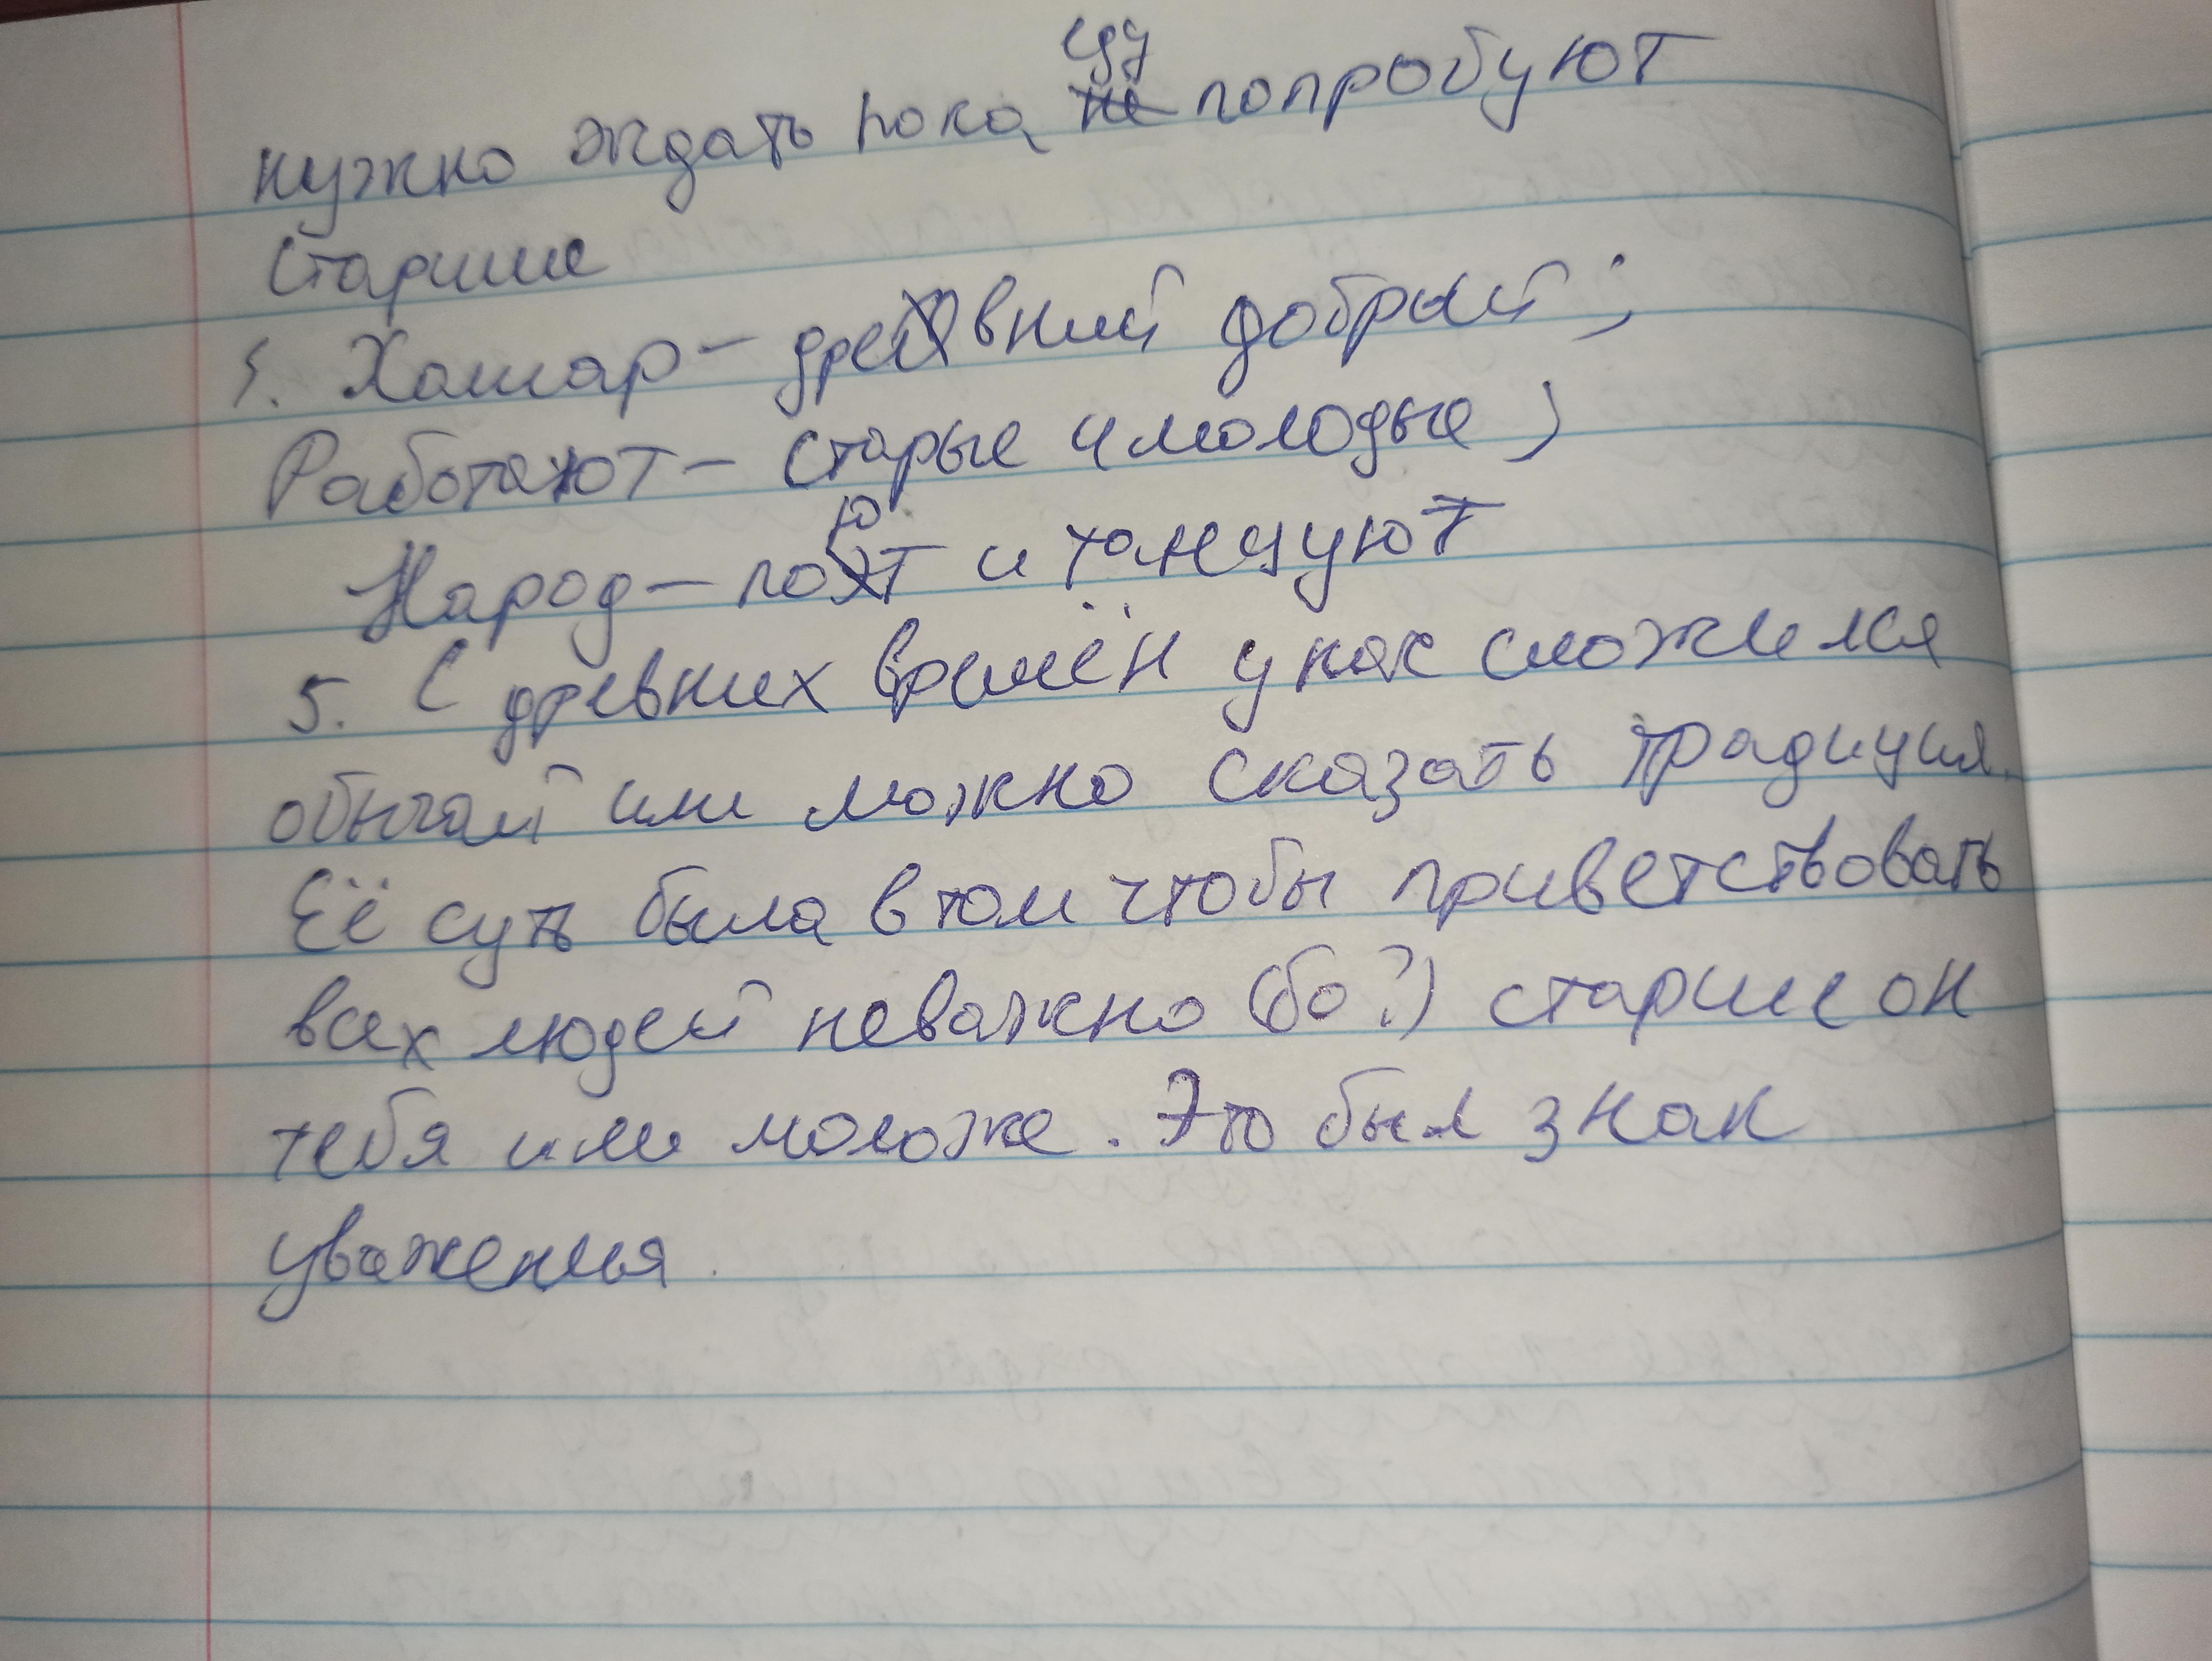 нужно ждать пока еду попробуют
старшие
4. Хашар – древний добрый;
Работают – старые и молодые;
Народ – поют и танцуют
5. С древних времён у нас сложился
обычай или можно сказать традиция.
Её суть была в том чтобы приветствовать
всех людей неважно (бо?) старше он
тебя или моложе. Это был знак
уваженья